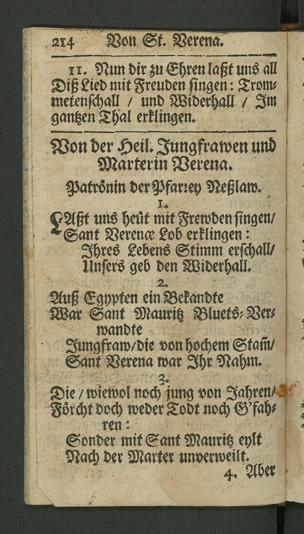 214 Von St. Verena.
11. Nun dir zu Ehren laßt uns all
Diß Lied mit Freuden singen: Trom-
metenschall / und Widerhall / Im
gantzen Thal erklingen.
Von der Heil. Jungfrawen und
Marterin Verena.
Patrönin der Pfarrey Neßlaw.
1.
LAßt uns heüt mit Frewden singen/
Sant Verenæ Lob erklingen:
Ihres Lebens Stimm erschall/
Unsers geb den Widerhall.
2.
Auß Egypten ein Bekandte
War Sant Mauritz Bluets-Ver-
wandte
Jungfraw/die von hochem Stam̃/
Sant Verena war Ihr Nahm.
3.
Die / wiewol noch jung von Jahren/
Förcht doch weder Todt noch G'fah-
ren:
Sonder mit Sant Mauritz eylt
Nach der Marter unverweilt.
4. Aber